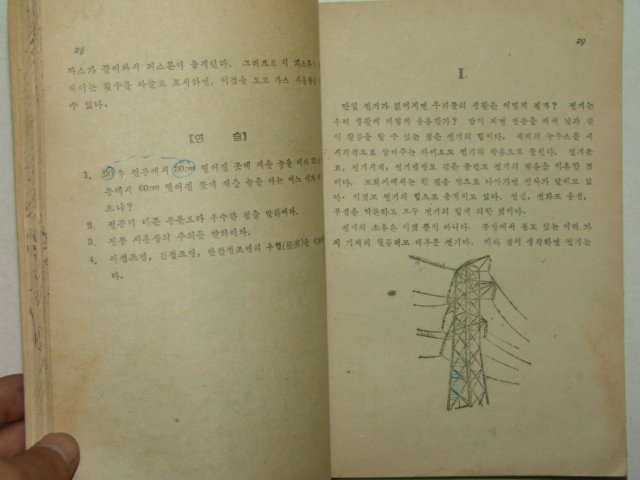 28
가스가 들어와서 피스톤이 움직인다. 그러므로 이 피스톤이
직이는 횟수를 바늘로 표시하면, 이것을 보고 가스 사용량이
수 있다.
【연 습】
1. 20촉 전등에서 30cm 떨어진 곳에 책을 놓을 때와
등에서 60cm 떨어진 곳에 책을 놓을 때는 어느 때가
으냐?
2. 전등이 다른 등불보다 우수한 점을 말하여라.
3. 전등 사용상의 주의를 말하여라.
4. 직접조명, 간접조명, 반간접조명의 우열(優劣)을
라.
29
II.
만일 전기가 없어지면 우리들의 생활은 어떻게 될까? 전기는
우리 생활에 어떻게 유용한가? 밤이 되면 전등을 켜서 낮과 같
이 활동을 할 수 있는 것은 전기의 힘이다. 세계의 뉴우스를 시
시각각으로 알려주는 라디오도 전기의 작용으로 들린다. 전기곤
로, 전기시계, 전기냉장고 같은 물건도 전기의 작용을 이용한 것
이다. 도회지에서는 한 걸음 밖으로 나아가면 전차가 달리고 있
다. 이것도 전기의 힘으로 움직이고 있다. 전신, 전화도 유선,
무선을 막론하고 모두 전기의 힘에 의한 것이다.
전기의 소용은 이것 뿐이 아니다. 공장에서 쓰고 있는 여러 가
지 기계의 원동력도 태우른 전기다. 이와 같이 생각하면 전기는